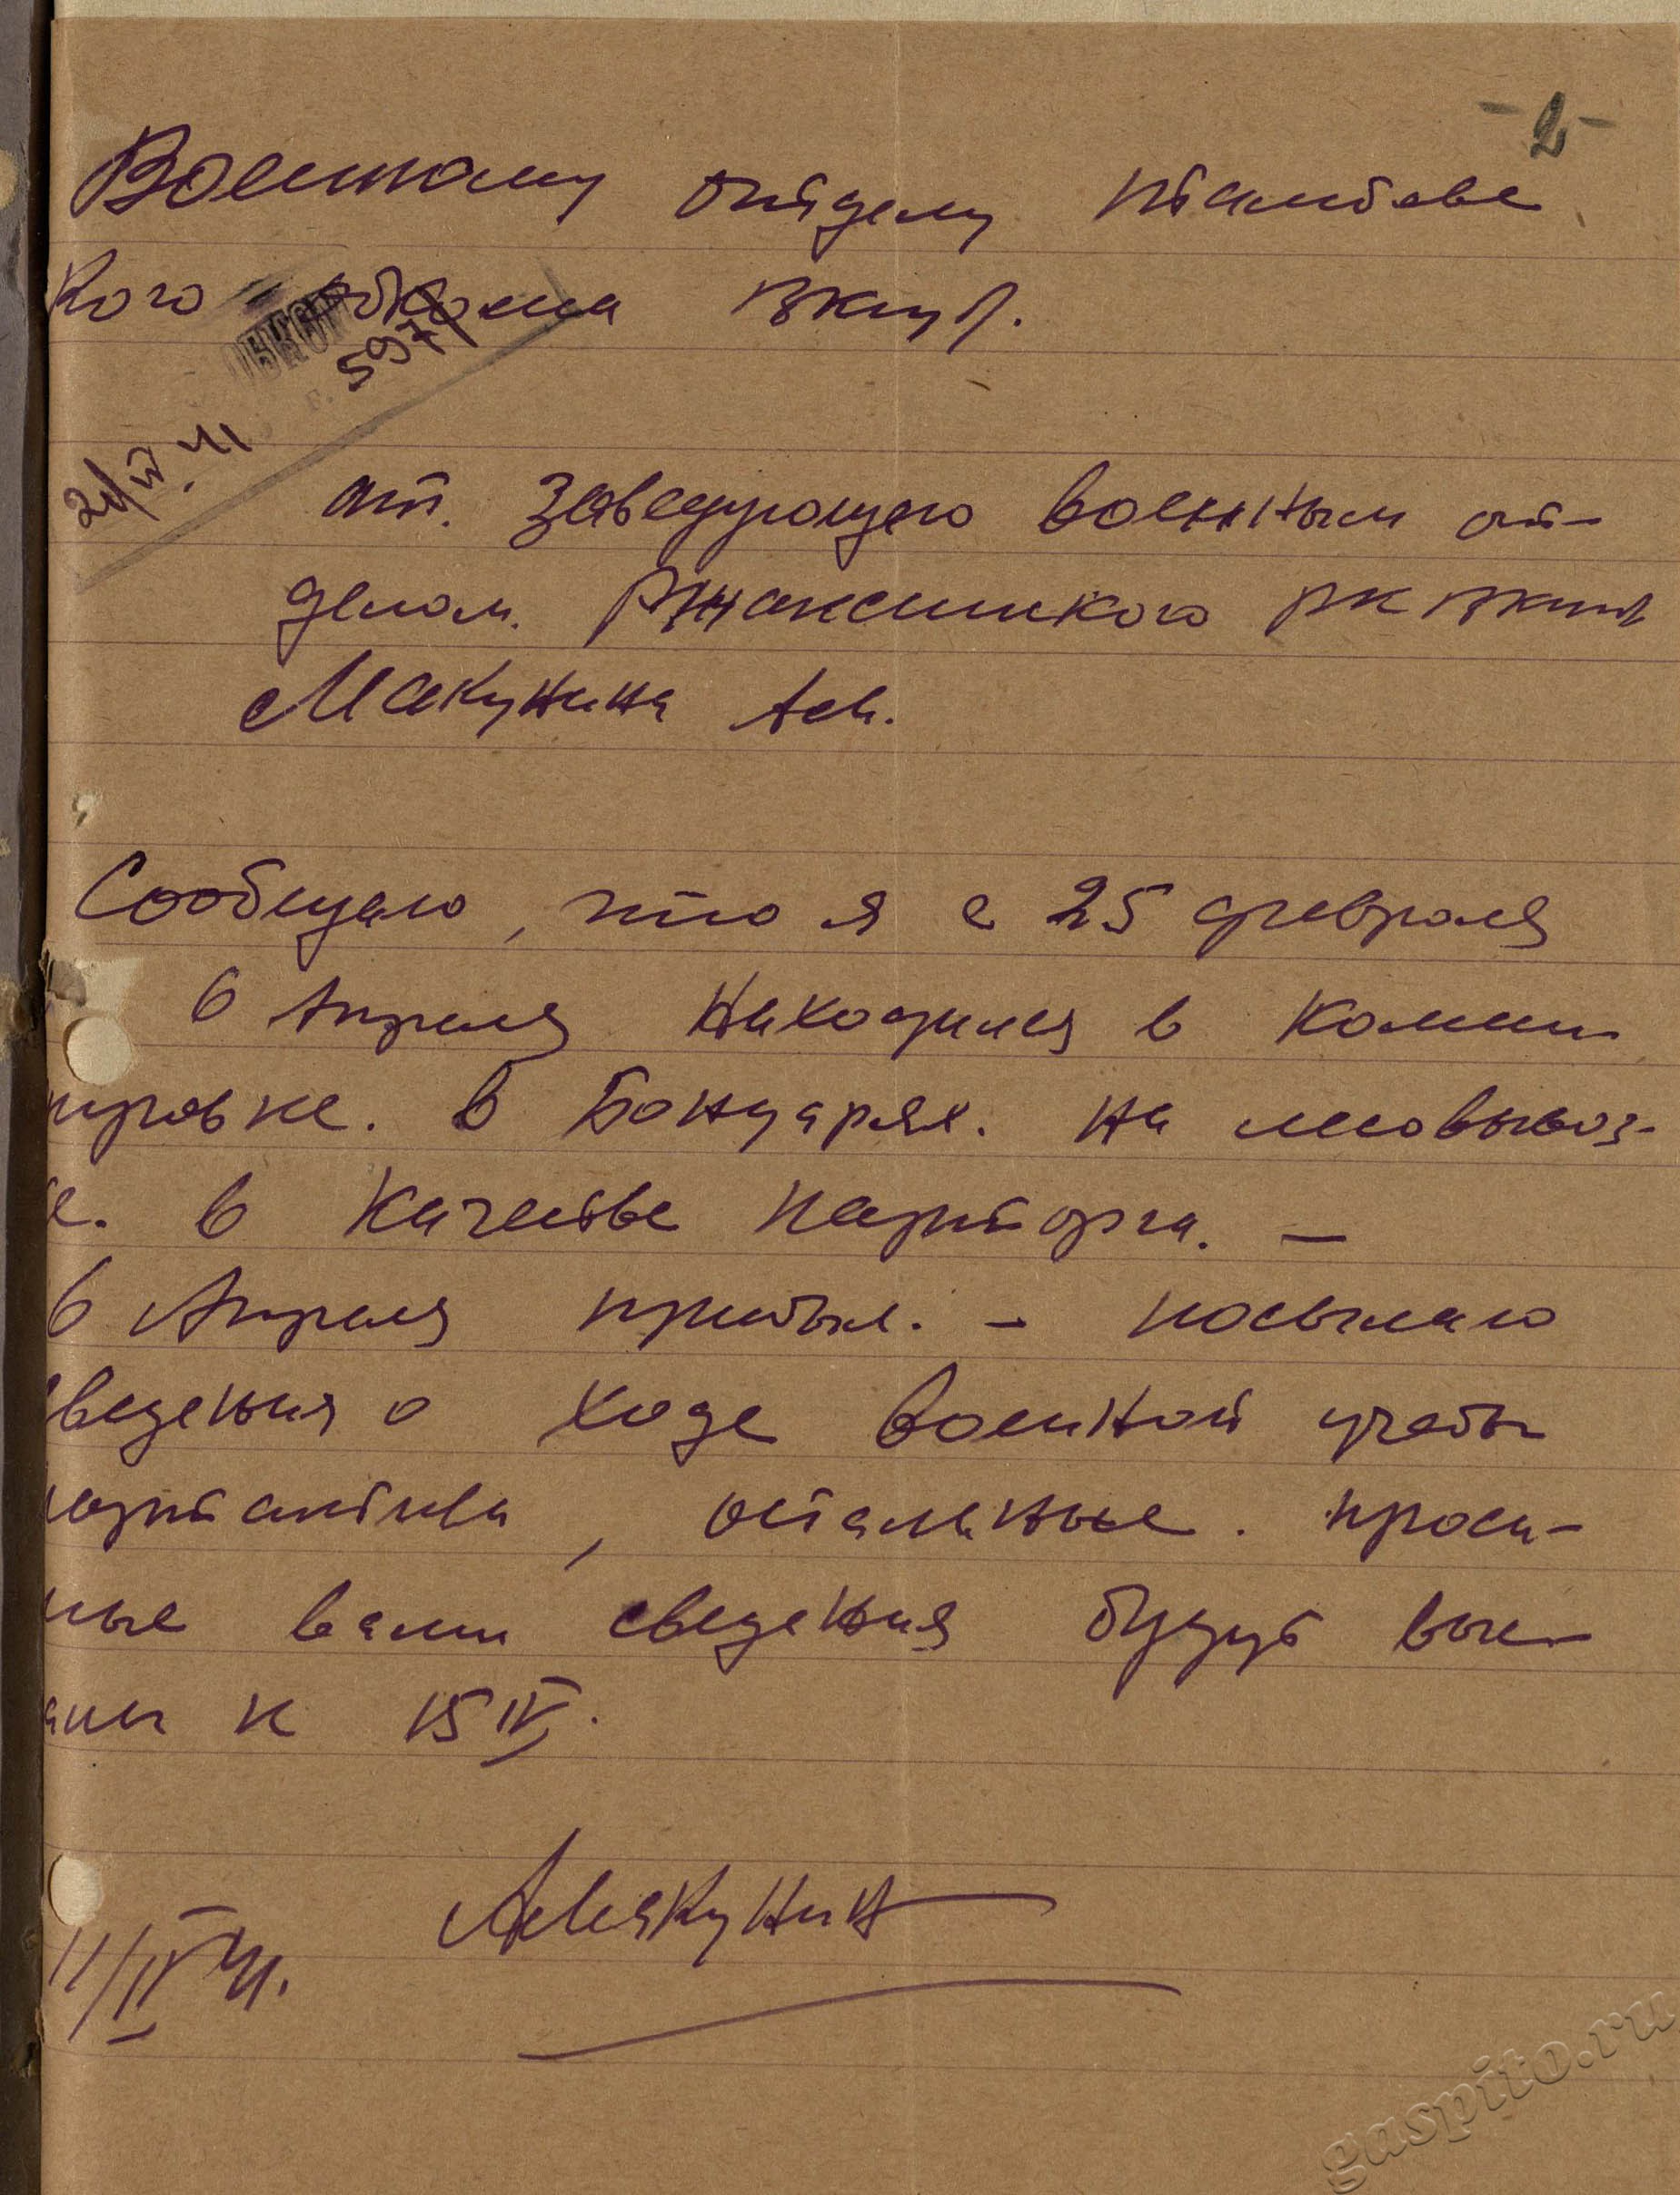 -2-
Военному отделу Тамбовс
кого обкома ВКП/б/.
597
21/IV 41
от. Заведующего военным от-
делом. Ржаксинского РК ВКП/б/
Макунина Ам.
Сообщаю, что я с 25 февраля
6 Апреля находился в Коман
ировке. в Бондарях. на лесовывоз-
е. в качестве парторга. —
6 Апреля прибыл. - посылаю
ведения о ходе военной учебы
партактива, остальные. проси-
мые вами сведения будут выс-
аны к 15 IV.
АМакунин
11/IV 41.
gaspito.ru